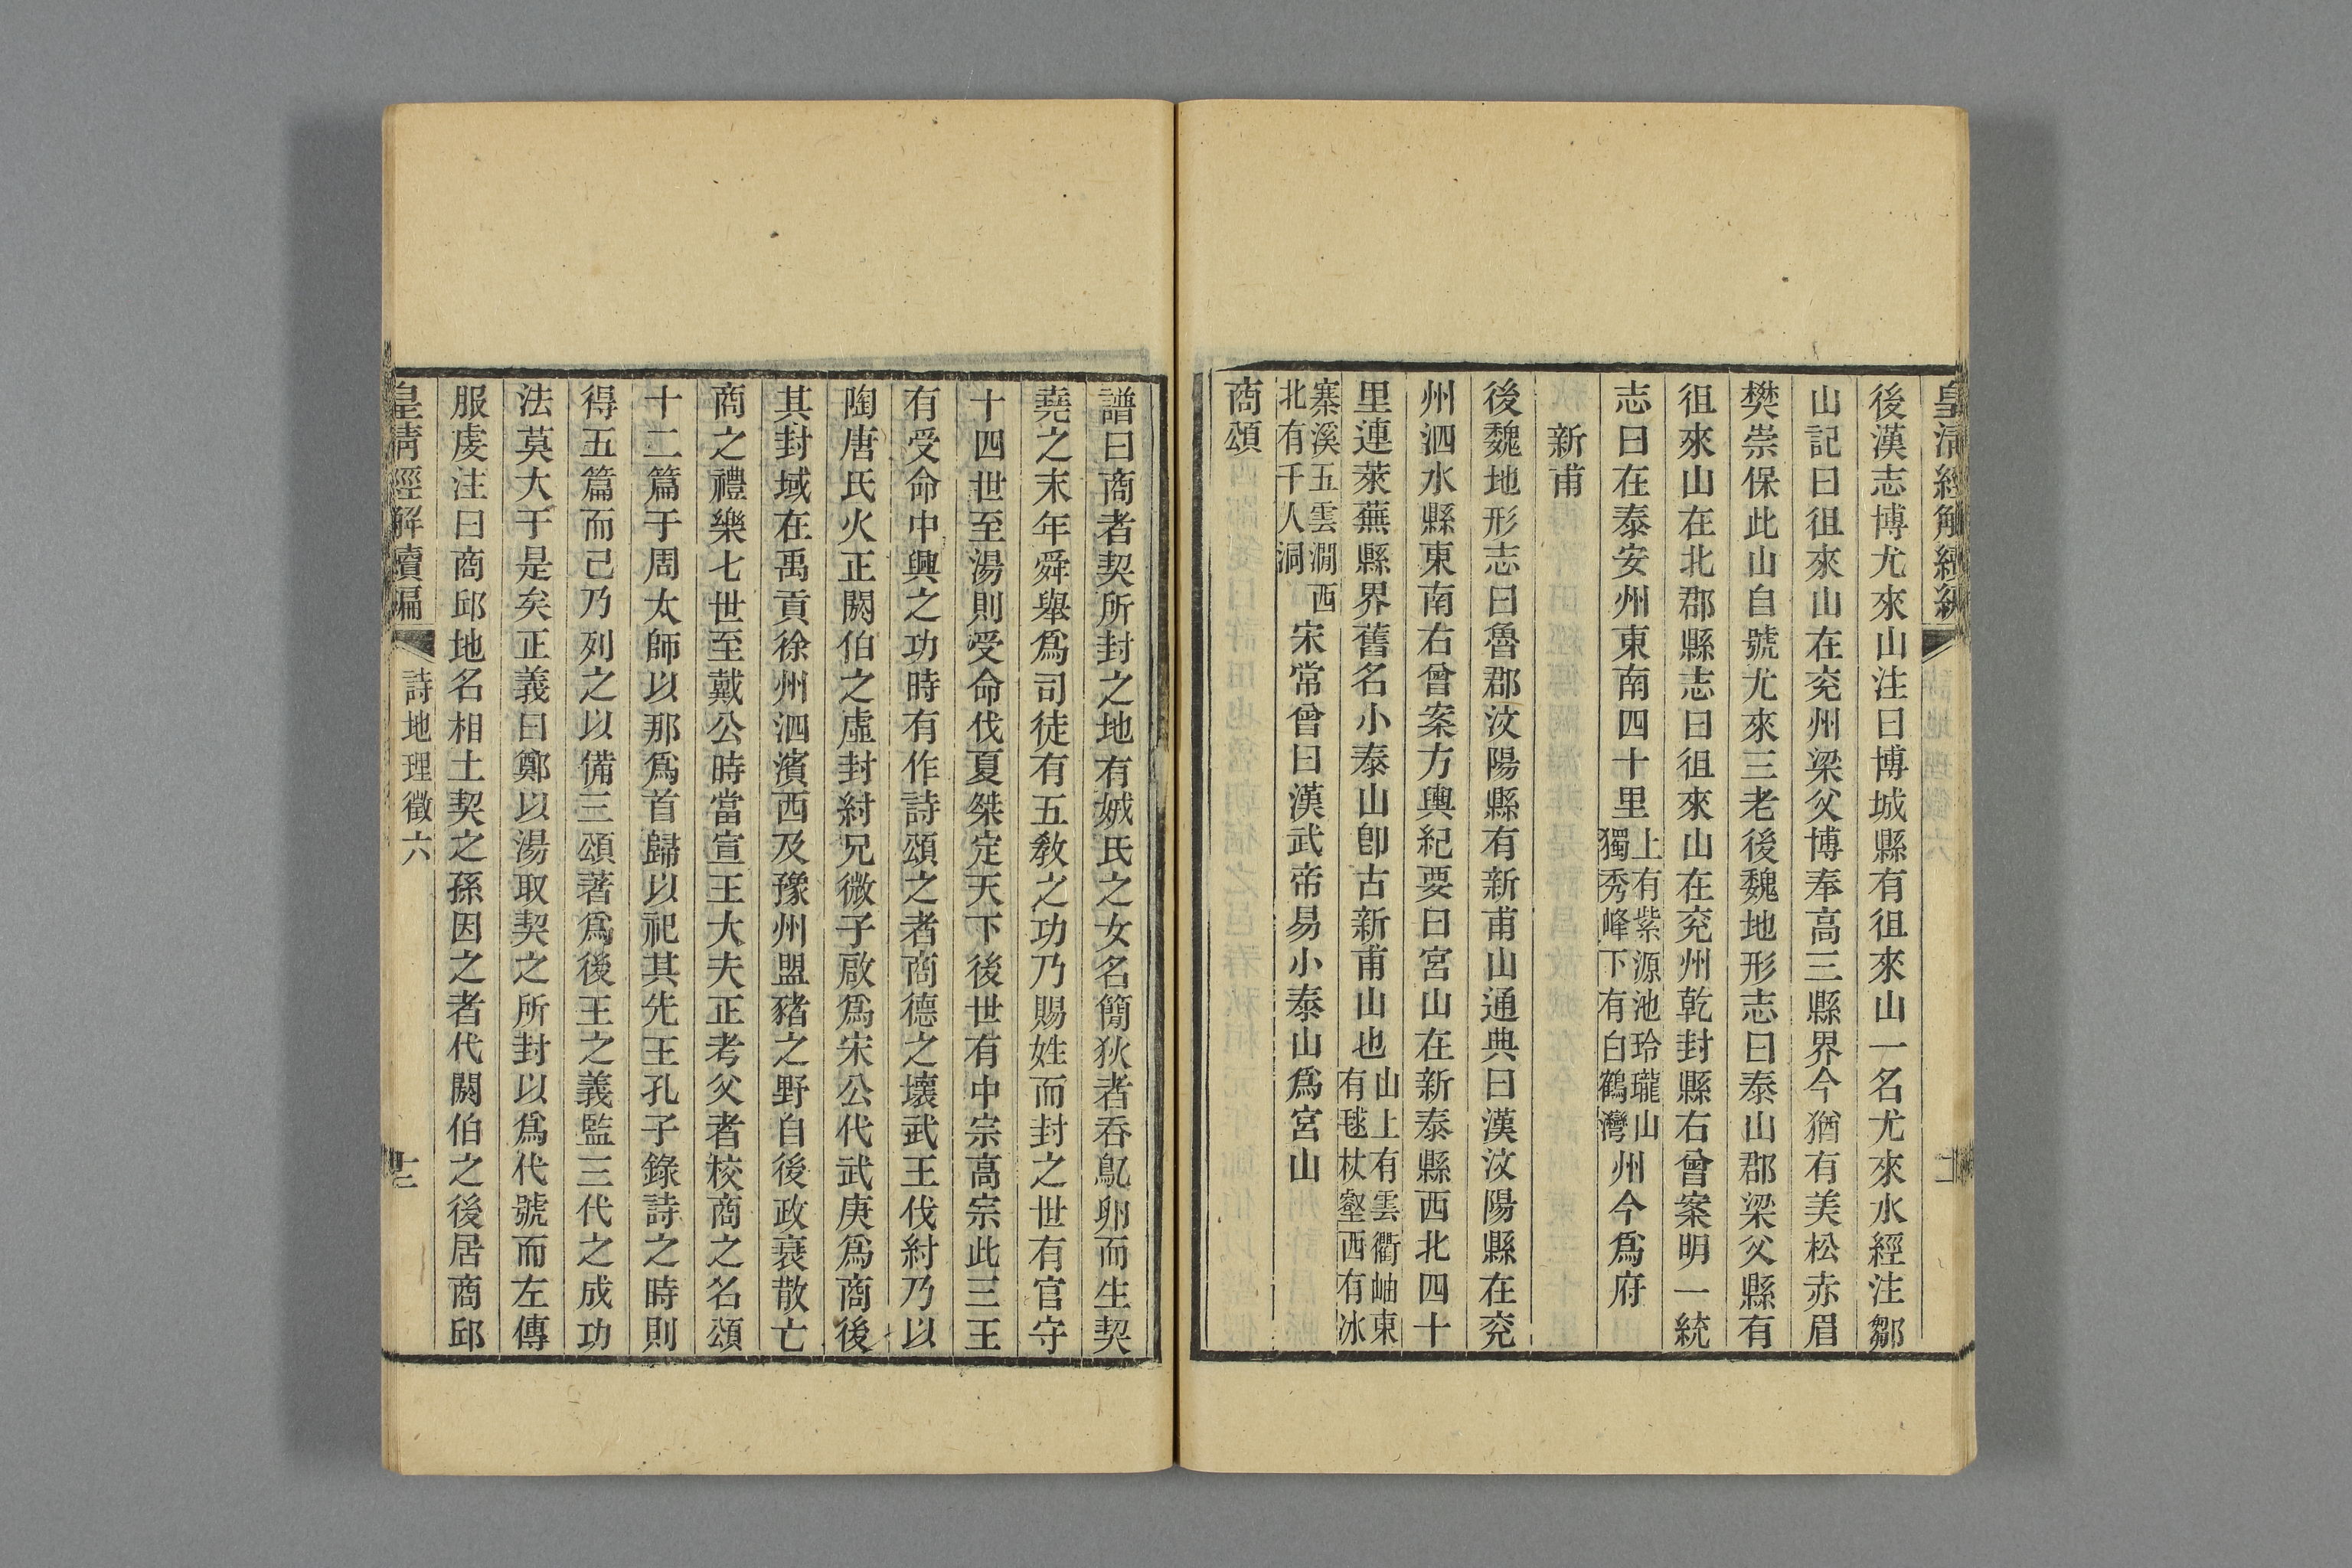 皇清經解續編
後漢志博尤來山注曰博城縣有徂來山一名尤來水經注鄒
山記曰徂來山在兖州梁父博奉高三縣界今猶有美松赤眉
樊崇保此山自號尤來三老後魏地形志曰泰山郡梁父縣有
徂來山在北郡縣志曰徂來山在兖州乾封縣右曾案明一統
志曰在泰安州東南四十里上有紫源池玲瓏山獨秀峰下有白鶴灣州今爲府
新甫
後魏地形志曰魯郡汶陽縣有新甫山通典曰漢汶陽縣在兖
州泗水縣東南右曾案方輿紀要曰宮山在新泰縣西北四十
里連萊蕪縣界舊名小泰山卽古新甫山也山上有雲衢岫東有毬杖壑西有冰
寨溪五雲澗西北有千人洞宋常曾曰漢武帝易小泰山爲宮山
商頌
譜曰商者契所封之地有娀氏之女名簡狄者吞鳦卵而生契
堯之末年舜舉爲司徒有五敎之功乃賜姓而封之世有官守
十四世至湯則受命伐夏桀定天下後世有中宗高宗此三王
有受命中興之功時有作詩頌之者商德之壞武王伐紂乃以
陶唐氏火正閼伯之虛封紂兄微子啟爲宋公代武庚爲商後
其封域在禹貢徐州泗濱西及豫州盟豬之野自後政衰散亡
商之禮樂七世至戴公時當宣王大夫正考父者校商之名頌
十二篇于周太師以那爲首歸以祀其先王孔子錄詩之時則
得五篇而己乃列之以備三頌著爲後王之義監三代之成功
法莫大于是矣正義曰鄭以湯取契之所封以爲代號而左傳
服虔注曰商邱地名相土契之孫因之者代閼伯之後居商邱
皇清經解續編
詩地理徵六
十二